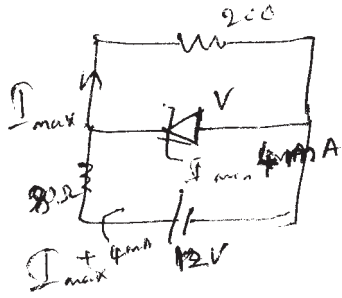 200
I max
V
I min 4mA
80Ω
I max + 4mA
12V